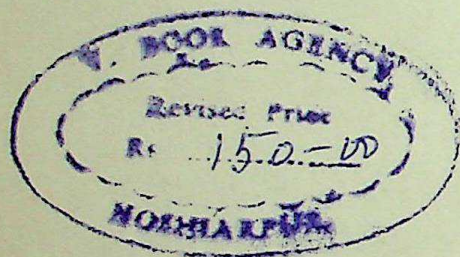 V. BOOK AGENCY
Revised Price
Rs. 150-00
HOSHIARPUR